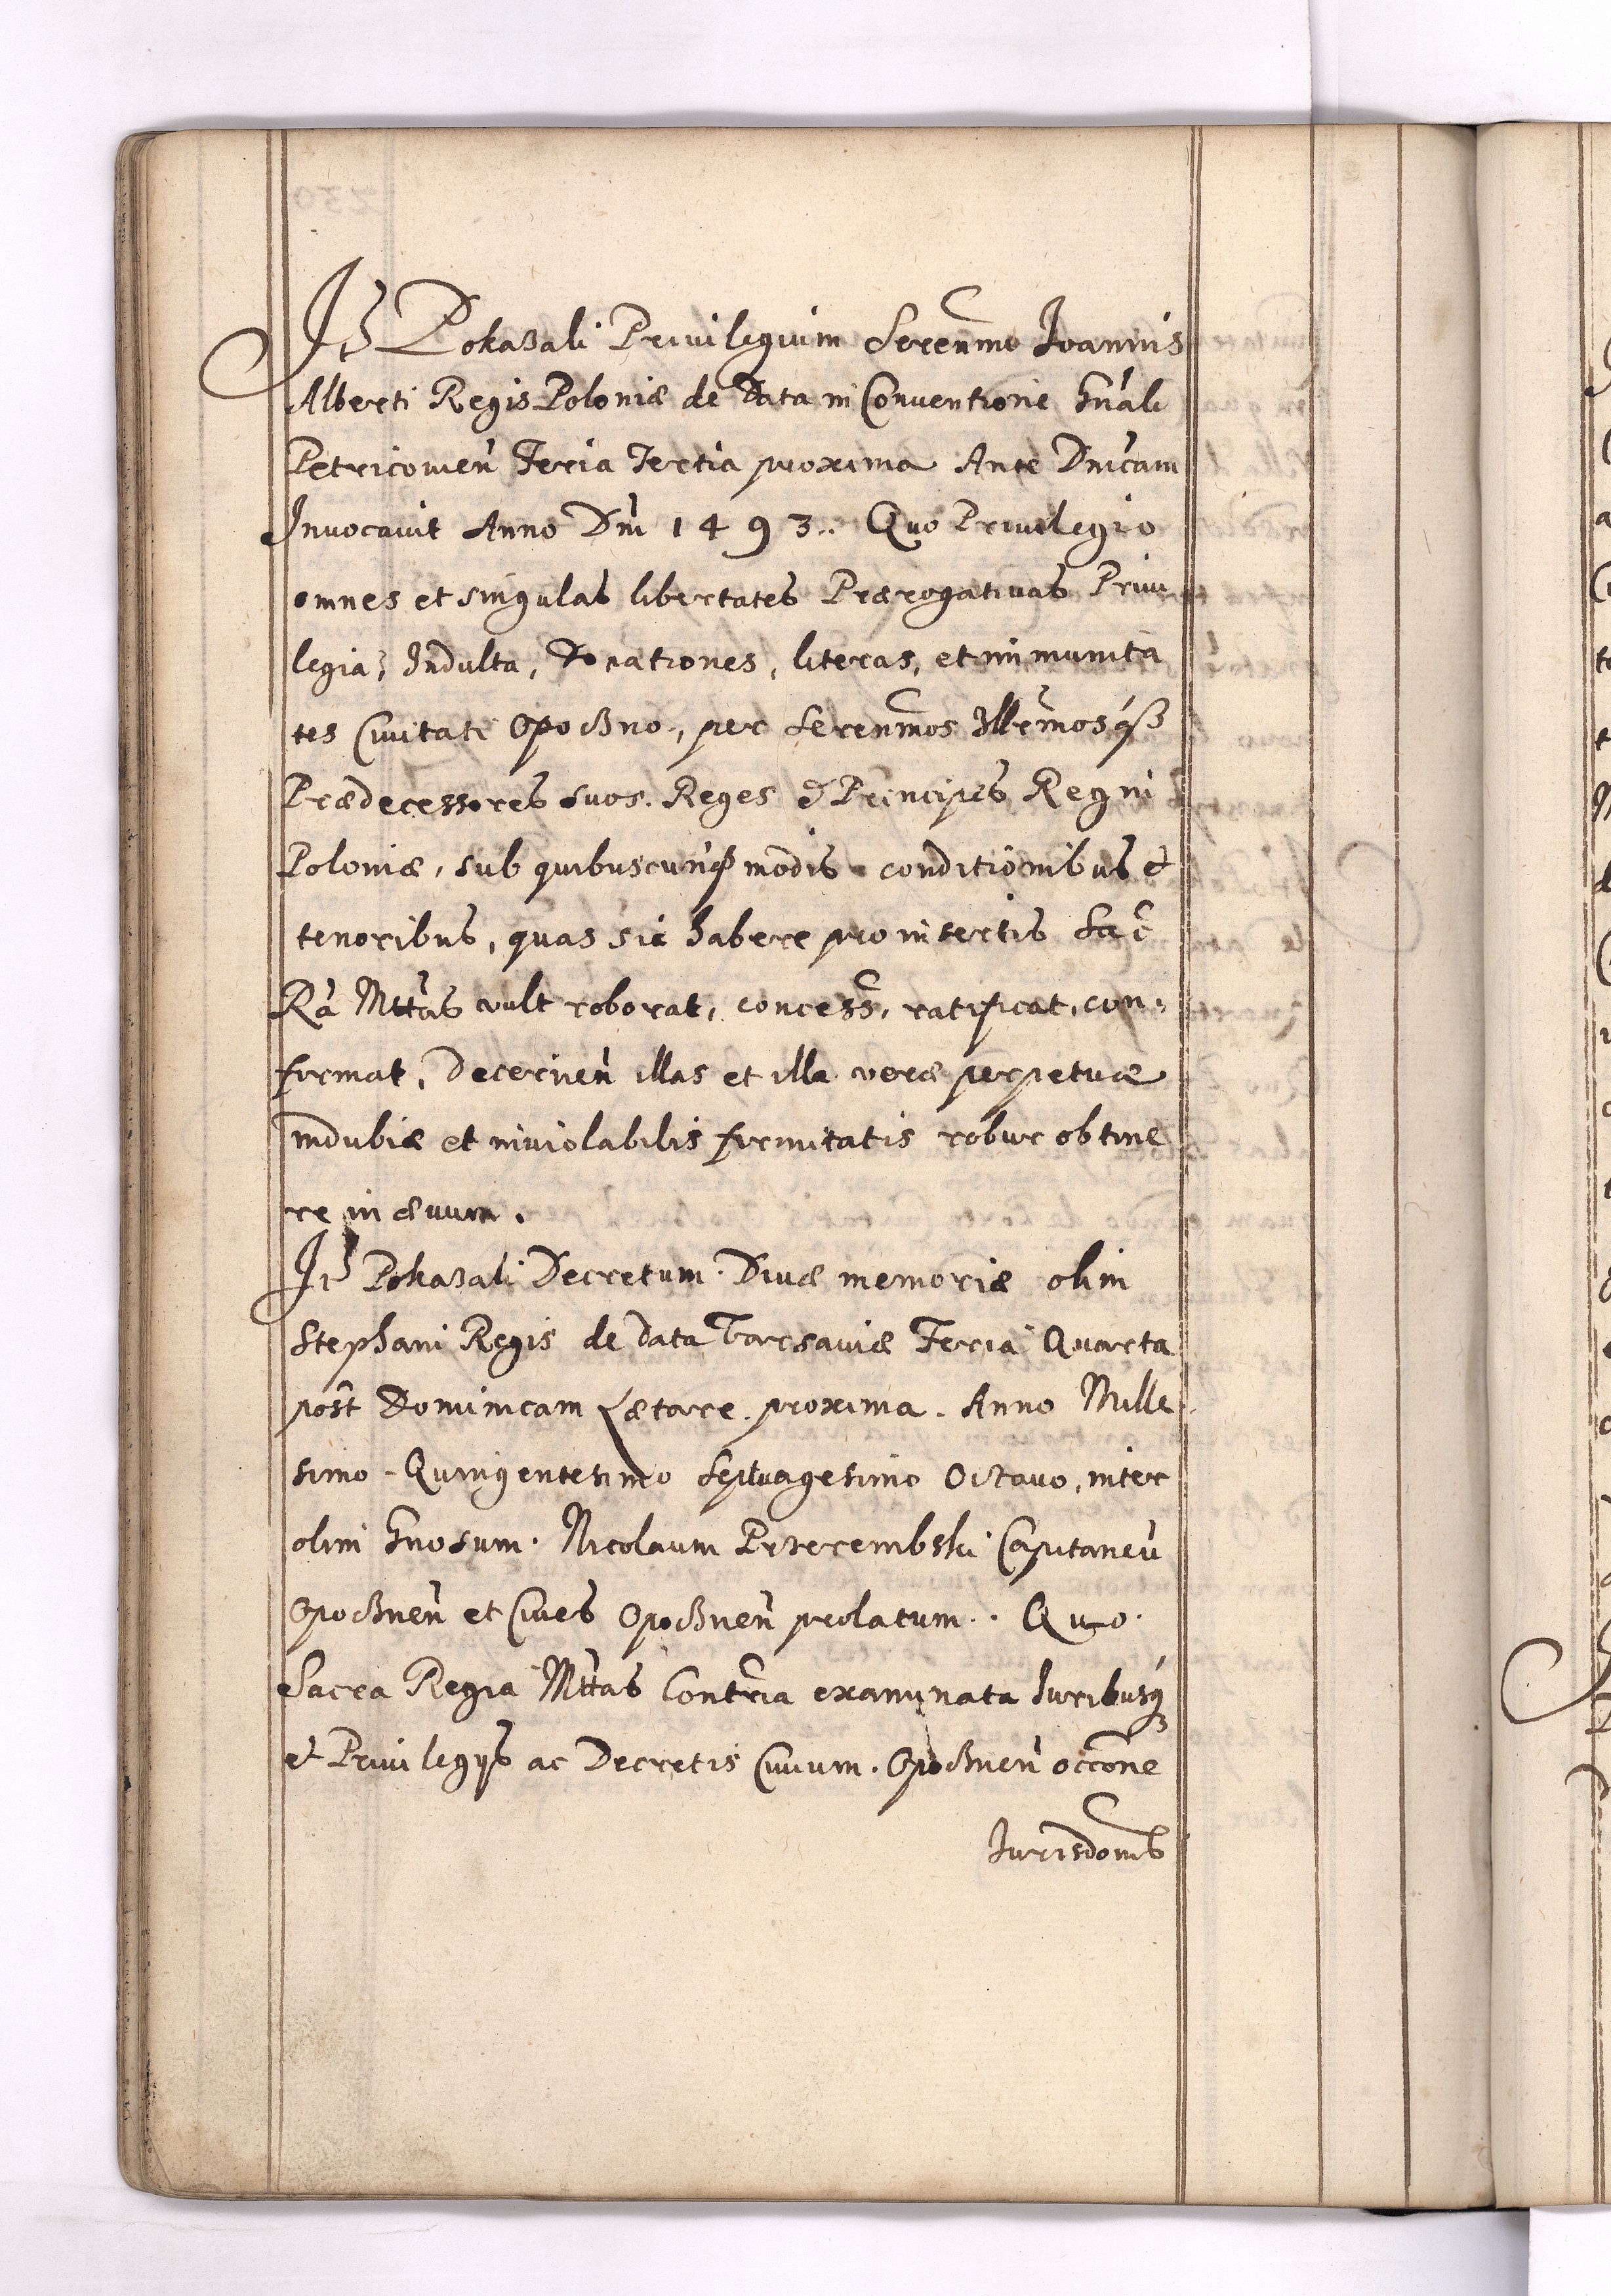 It Pokazali Privilegium Serenmo Joannis
Alberti Regis Poloniæ de Data in Conventione Gnali
Petricovien Feria Tertia proxima Ante Dnicam
Invocavit Anno Dni 1493. Quo Privilegio
omnes et singulas libertates Prærogativas Privi
legia, Indulta, Donationes, literas, et immunita
tes Civitati Opoczno, per Serenmos Illrmosq3
Prædecessores suos. Reges et Principes Regni
Poloniæ, sub quibuscunq3 modis conditionibus et
tenoribus, quas sic habere pro insertis Sac
Ra Mttas vult roborat, concess, ratificat, con,
firmat, Decernen illas et illa veræ perpetuæ
indubiæ et inviolabilis firmitatis robur obtine
re in ævum.
It Pokazali Decretum. Divæ memoriæ olim
Stephani Regis de data Varsaviæ Feria Quarta
post Dominicam Lætare. proxima. Anno Mille
simo Quingentesimo Septuagesimo Octavo, inter
olim Gnosum. Nicolaum Przerembski Capitaneu
Opocznen et Cives Opocznen prolatum. Quo.
Sacra Regia Mttas Contria examinata Juribusq3
et Privilegys ac Decretis Civium. Opocznen occone
Jurisdonis